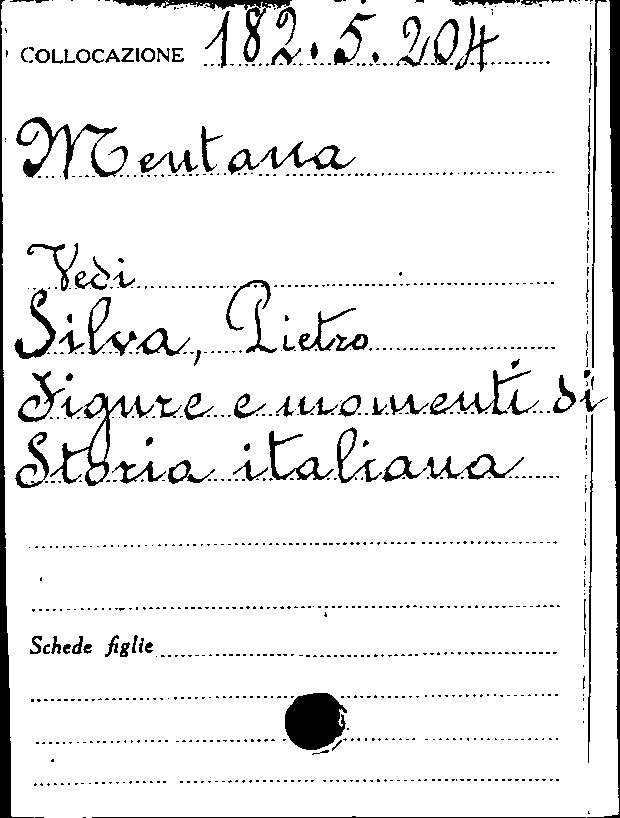 COLLOCAZIONE 182.5.204
Mentana
Vedi
Silva, Pietro
Figure e momenti di
Storia italiana
Schede figlie